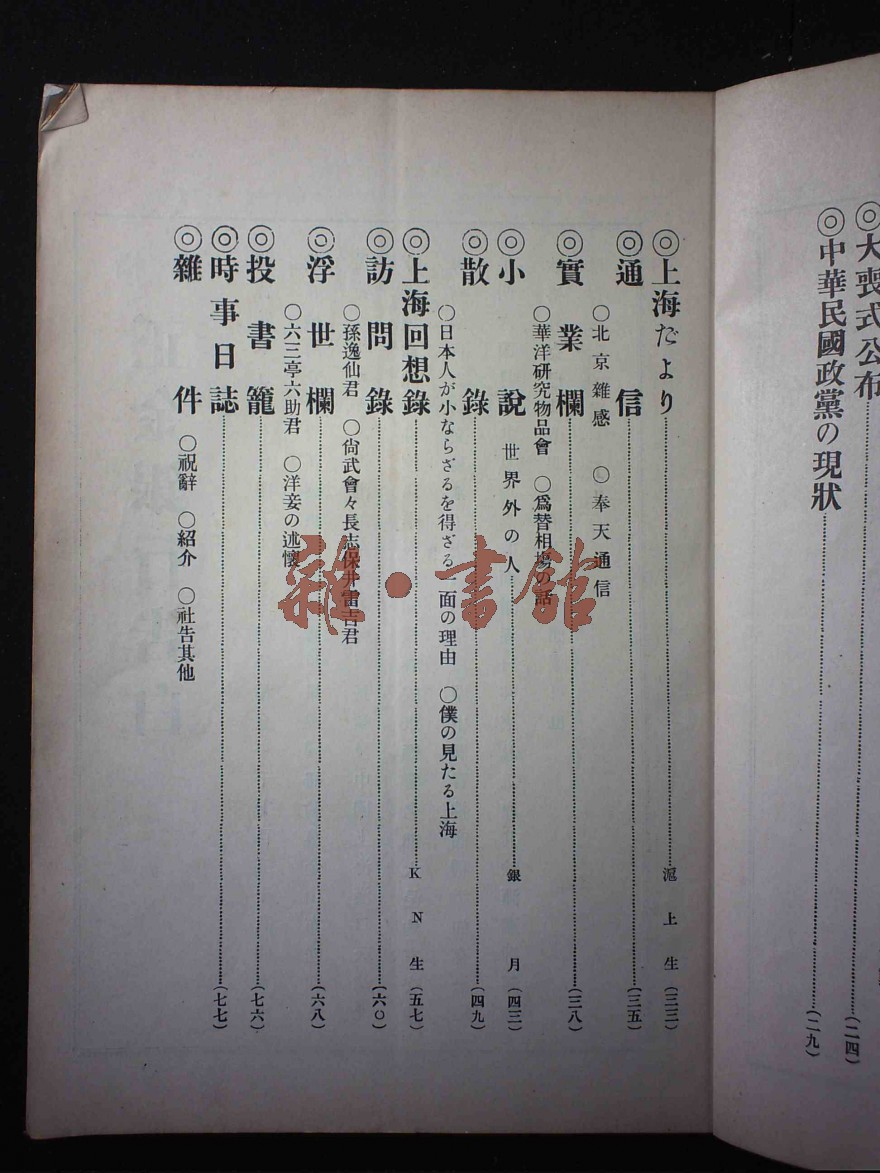 ◎大喪式公布……(二四)
◎中華民國政黨の現狀……(二九)
◎上海だより……滬上生(三三)
◎通信……(三五)
○北京雜感 ○奉天通信
◎實業欄……(三八)
○華洋研究物品會 ○爲替相場の話
◎小說 世界外の人……銀月(四三)
◎散錄……(四九)
○日本人が小ならざるを得ざる一面の理由 ○僕の見たる上海
◎上海回想錄……KN生(五七)
◎訪問錄……(六〇)
○孫逸仙君 ○尙武會々長志保井雷吉君
◎浮世欄……(六八)
○六三亭六助君 ○洋妾の述懷
◎投書籠……(七六)
◎時事日誌……(七七)
◎雜件 ○祝辭 ○紹介 ○社告其他
雜·書館